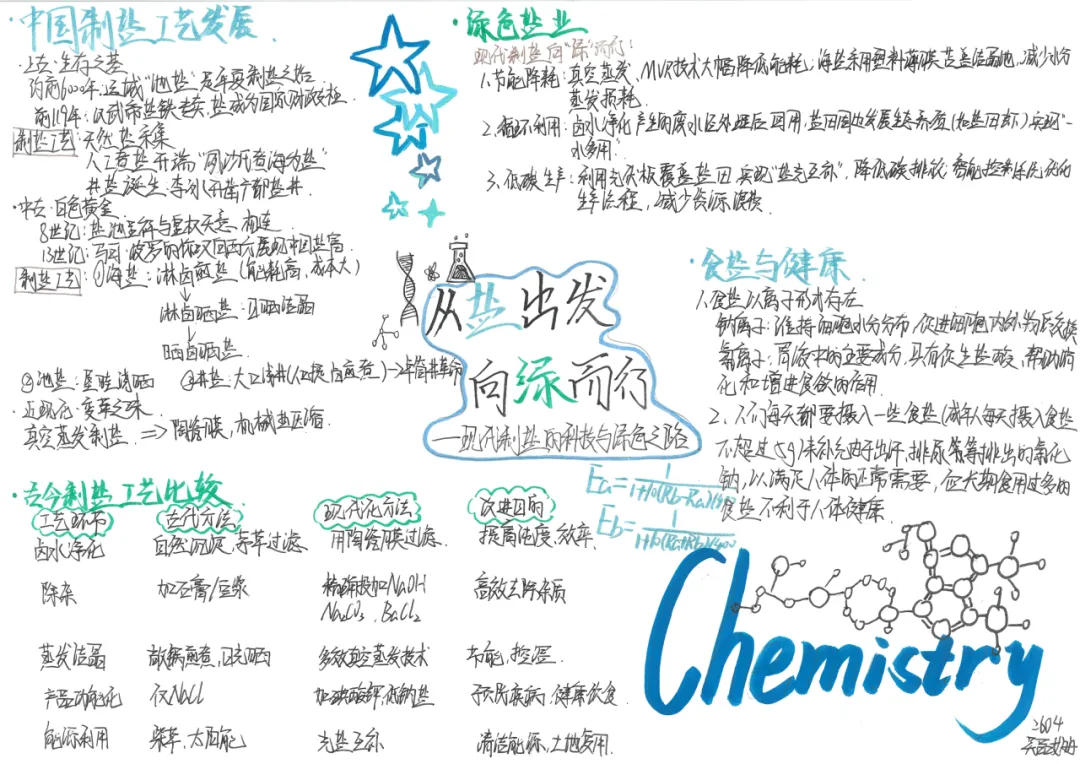 ·中国制盐工艺发展.
·上古·生存之基
约前6000年,运城"池盐"是华夏制盐之始
前119年:汉武帝盐铁专卖,盐成为国家财政支柱.
制盐工艺:天然盐采集
人工煮盐开端"夙沙氏煮海为盐"
井盐诞生:李冰开凿广都盐井
·中古·白色黄金
8世纪:盐池吉祥与皇权天意相连
13世纪:马可·波罗的 向西方展现中国盐局
制盐工艺:①海盐:淋卤煎盐(能耗高,成本大)
淋卤晒盐:日晒结晶
晒卤晒盐.
②池盐:垦畦浇晒 ③井盐:大口浅井(人工提卤煎煮)→卓筒井革命
·近现代·变革之味
真空蒸发制盐. ⇒陶瓷膜,机械热压缩.
·绿色盐业
现代制盐向"绿"而行:
1.节能降耗:真空蒸发、MVR技术大幅降低能耗,海盐采用塑料薄膜苫盖结晶池,减少水分
蒸发损耗.
2.循环利用:卤水净化产生的废水经处理后回用,盐田周边发展生态养殖(如盐田虾)实现"一
水多用".
3.低碳生产:利用光伏板覆盖盐田实现"盐光互补",降低碳排放;智能控制系统优化
生产流程,减少资源浪费.
从盐出发
向绿而行
—现代制盐的科技与绿色之路
·食盐与健康
1.食盐以离子形式存在
钠离子:维持细胞水分分布,促进细胞内外物质交换
氯离子:胃液中的主要成分,具有促生盐酸、帮助消
化和增进食欲的作用
2.人们每天都要摄入一些食盐(成年人每天摄入食盐
不超过5g)来补充由于出汗、排尿等排出的氯化
钠,以满足人体的正常需要,但长期食用过多的
食盐不利于人体健康.
·古今制盐工艺比较
工艺环节 古代方法 现代化方法 改进目的
卤水净化 自然沉淀,茅草过滤 用陶瓷膜过滤. 提高纯度、效率.
除杂 加石膏/豆浆 精确投加NaOH
Na₂CO₃、BaCl₂ 高效去除杂质
蒸发结晶 敞锅煎煮,日光晒 多效真空蒸发技术 节能,控温.
产品功能化 仅NaCl 加碘酸钾,低钠盐 预防疾病,健康饮食.
能源利用 柴草、太阳能 光盐互补 清洁能源,土地复用.
Chemistry
2604